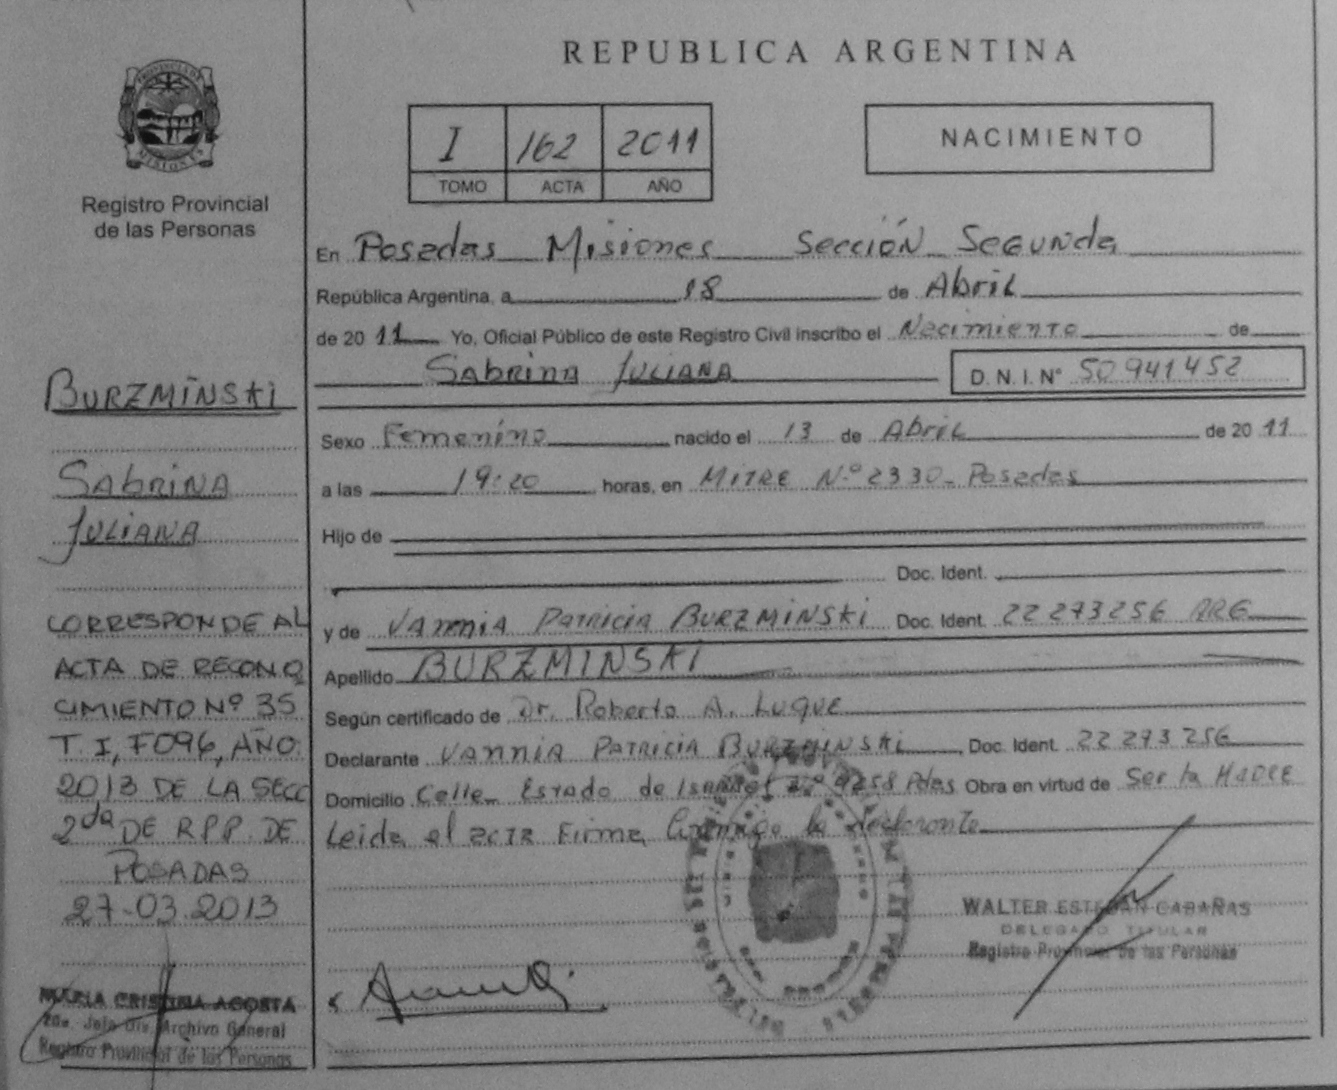 PROVINCIA DE
MISIONES
Registro Provincial
de las Personas
BURZMINSKI
SABRINA
JULIANA
CORRESPONDE AL
ACTA DE RECONO
CIMIENTO Nº 35
T. I, Fº96, AÑO:
2013 DE LA SECC
2da DE R.P.P. DE
POSADAS
27-03.2013
MARIA CRISTINA ACOSTA
Archivo General
Registro Provincial de las Personas
REPUBLICA ARGENTINA
I 162 2011
TOMO ACTA AÑO
NACIMIENTO
En Posadas Misiones Sección Segunda
República Argentina, a 18 de Abril
de 20 11 Yo, Oficial Público de este Registro Civil inscribo el Nacimiento de
Sabrina Juliana D. N. I. Nº 50 941 452
Sexo Femenino nacido el 13 de Abril de 20 11
a las 19:20 horas, en Mitre N.º 2330_ Posadas
Hijo de
Doc. Ident.
y de Vannia Patricia Burzminski Doc. Ident. 22 273 256 ARG
Apellido BURZMINSKI
Según certificado de Dr. Roberto A. Luque
Declarante Vannia Patricia Burzminski Doc. Ident. 22 273 256
Domicilio Calle Estado de Israel Nº Pdas Obra en virtud de Ser la Madre
Leida el acta Firma Conmigo la declarante
WALTER ESTEBAN CABAÑAS
DELEGADO TITULAR
Registro Provincial de las Personas